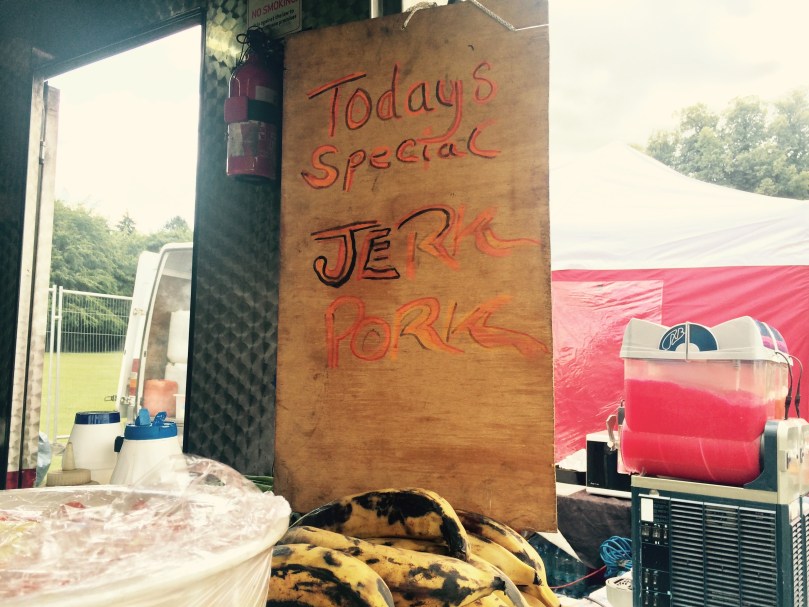 NO SMOKING
Today's
Special
JERK
PORK